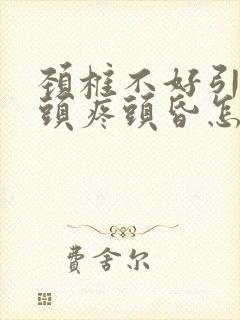 頚椎不好引
頭疼頭昏怎
費舍尔